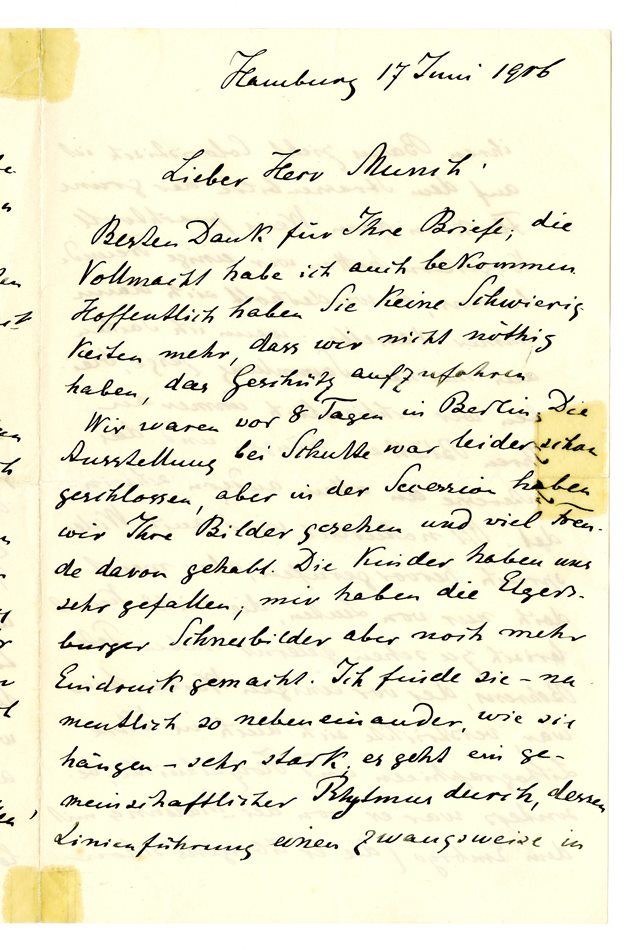 Hamburg 17 Juni 1906
Lieber Herr Munch!
Besten Dank für Ihre Briefe; die
Vollmacht habe ich auch bekommen
Hoffentlich haben Sie keine Schwierig
keiten mehr, dass wir nicht nöthig
haben, das Geschütz aufzufahren
Wir waren vor 8 Tagen in Berlin. Die
Ausstellung bei Schulte war leider schon
geschlossen, aber in der Secession haben
wir Ihre Bilder gesehen und viel Freu-
de davon gehabt. Die Kinder haben uns
sehr gefallen; mir haben die Elgers-
burger Schneebilder aber noch mehr
Eindruck gemacht. Ich finde sie – na
mentlich so nebeneinander, wie sie
hängen – sehr stark, es geht ein ge-
meinschaftlicher Rhytmus durch, dessen
Linienführung einen zwangsweise in